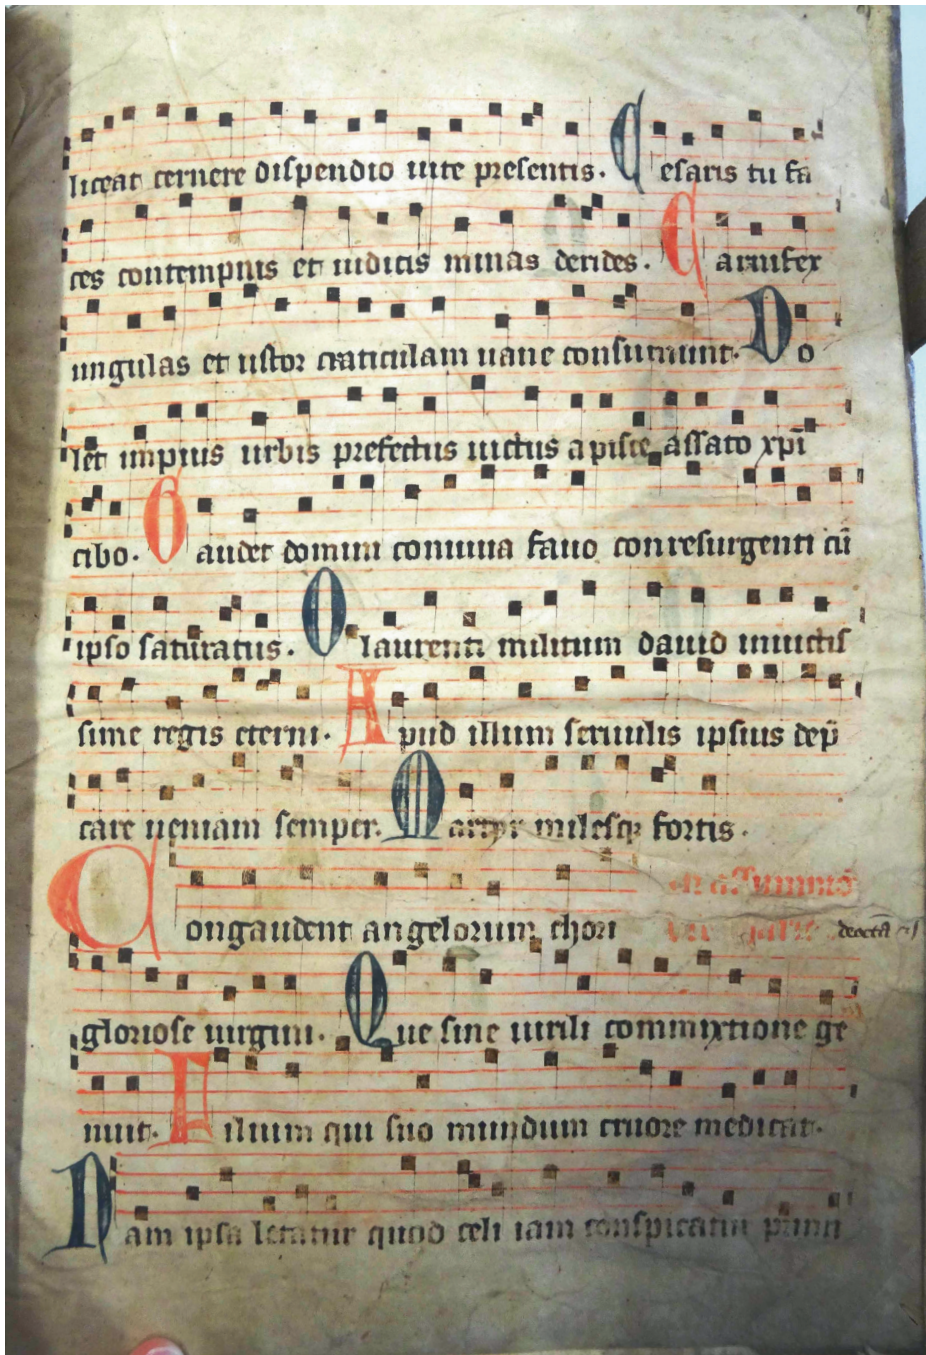 liceat cernere dispendio uite presentis. Cesaris tu fa
ces contempnis et iudicis minas derides. Carnifex
ungulas et ustor craticulam uane consumunt. Do
let impius urbis prefectus uictus a pisce assato xpī
cibo. Gaudet domini conuiua fauo conresurgenti cū
ipso saturatus. O laurenti militum dauid inuictis
sime regis eterni. Apud illum seruulis ipsius dep̄
care ueniam semper. Martyr milesq; fortis.
Congaudent angelorum chori
gloriose uirgini. Que sine uirili commixtione ge
nuit. Filium qui suo mundum cruore medicat.
Nam ipsa letatur quod celi iam conspicatur